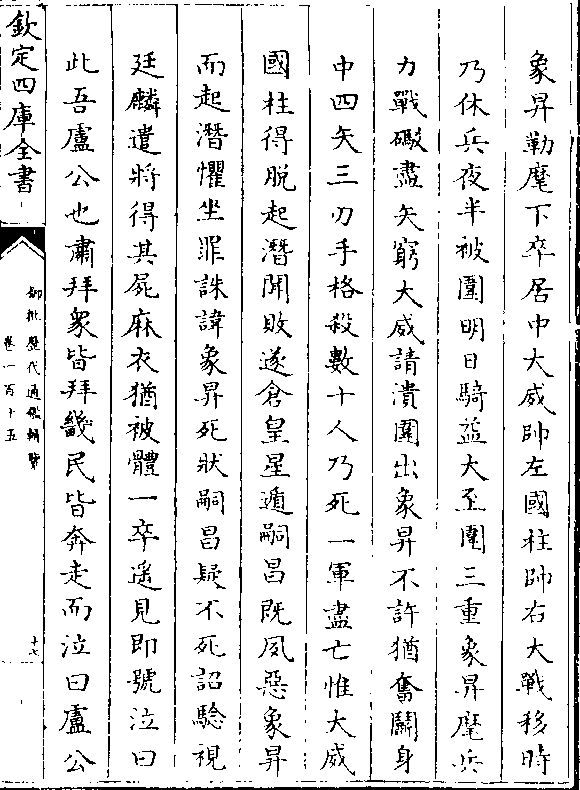 象昇勒麾下卒居中大威帥左國柱帥右大戰移時
乃休兵夜半被圍明日騎益大至圍三重象昇麾兵
力戰礮盡矢窮大威請潰圍出象昇不許猶奮鬭身
中四矢三刃手格殺數十人乃死一軍盡亡惟大威
國柱得脱起潛聞敗遂倉皇星遁嗣昌既夙惡象昇
而起潛懼坐罪誅諱象昇死狀嗣昌疑不死詔驗視
廷麟遣將得其屍麻衣猶被體一卒遥見即號泣曰
此吾盧公也肅拜衆皆拜畿民皆奔走而泣曰盧公
欽定四庫全書
御批歷代通鑑輯覽
卷一百十五
十七